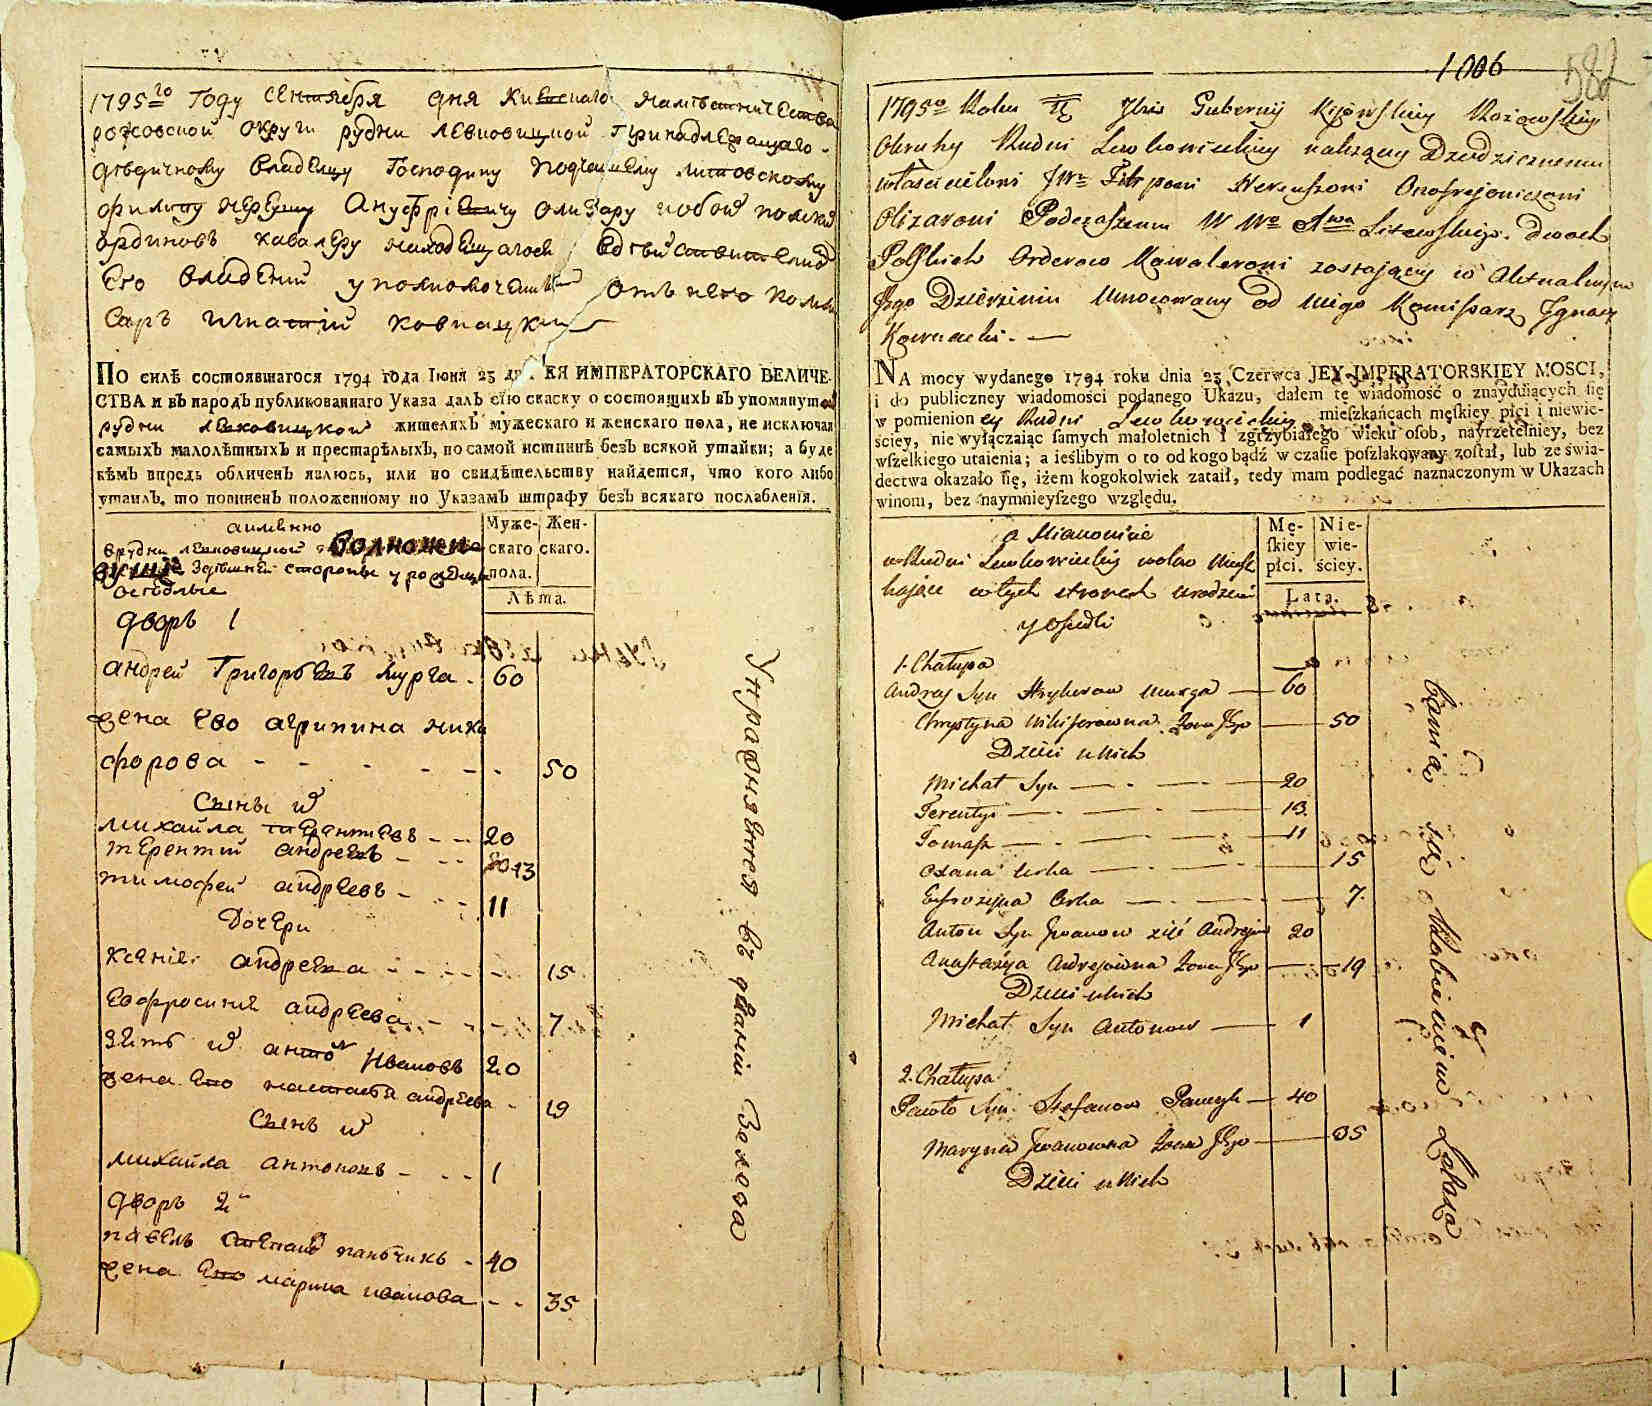 1795го Году Сентября дня Киевскаго наместничества
рожовской округи рудни левковицкой принадлежащаго
дедичному владелцу Господину Подчашему литовскому
филипу нерешу Ануфріевичу олизару обоих полских
ординовъ кавалеру находещагося в действителном
Его владении уполномоченный отъ него комми
саръ игнатій ковнацкий
ПО силѣ состоявшагося 1794 года Іюня 23 дня ЕЯ ИМПЕРАТОРСКАГО ВЕЛИЧЕ-
СТВА и въ народъ публикованнаго Указа далъ сію скаску о состоящихъ въ упомянутой
рудни левковицкой жителяхъ мужескаго и женскаго пола, не исключая
самыхъ малолѣтныхъ и престарѣлыхъ, по самой истиннѣ безъ всякой утайки; а буде
кѣмъ впредь обличенъ явлюсь, или по свидѣтельству найдется, что кого либо
утаилъ, то повиненъ положенному по Указамъ штрафу безъ всякаго послабленія.
аименно
врудни левковицкой волножи
вущие здешней стороны урожденцы
оселые
Муже- Жен-
скаго скаго.
пола.
Лѣта.
дворъ 1
андрей Григорьевъ мурга - 60
жена Его агрипина ники
форова - - - - - - 50
Сыны их
михайла - - 20
терентий андреевъ - - - 13
тимофей андреевъ - - - 11
Дочери
Ксения андреева - - - - 15
Евфросиния андреева - - - 7
зять их антон Ивановъ 20
жена Его настасья андреева - 19
Сынъ их
михайла антоновъ - - - 1
дворъ 2й
павелъ Степановъ панчукъ - 40
жена Его марина иванова - - 35
Упражняется въ деланіи железа
1006
582
1795о Roku Dnia Gubernij Kijowskiey Rożowskiey
Okruhy Rudni Lewkowickiey należący Dziedzicznemu
właścicielowi JWu Filipowi Nereuszowi Onofrejowiczowi
Olizarowi Podczaszemu W Wo Xwa Litewskiego. dwoch
Polskich Orderow Kawalerowi zostającey w Aktualnym
Jego Dzierżeniu Umocowany od niego Komissarz Jgnacy
Kownacki. —
NA mocy wydanego 1794 roku dnia 23 Czerwca JEY IMPERATORSKIEY MOSCI,
i do publiczney wiadomości podanego Ukazu, dałem tę wiadomość o znayduiących się
w pomienioney Rudni Lewkowickiey mieszkańcach męskiey płci i niewie-
sciey, nie wyłączaiąc samych małoletnich i zgrzybiałego wieku osob, nayrzetelniey, bez
wszelkiego utaienia; a ieślibym o to od kogo bądź w czasie poszlakowany został, lub ze świa-
dectwa okazało się, iżem kogokolwiek zataił, tedy mam podlegać naznaczonym w Ukazach
winom, bez naymnieyszego względu.
a Mianowicie
w Rudni Lewkowickiey wolno Miesz
kające w tych stronach urodzeni
y osiedli
Mę- Nie-
skiey wie-
płci. ściey.
Lata.
1. Chałupa
Andrey Syn Hryhorow Murga — 60
Chrystyna Nikiforowna Zona Jego — 50
Dzieci u Nich
Michał Syn — - — 20
Terentyi — - — 13
Tomasz — - — 11
Oxana Corka — - — 15
Eufrozyna Corka — - — 7.
Anton Syn Jwanow zięć Andreja 20
Anastazya Andrejowna Zona Jego — 19
Dzieci u Nich
Michał Syn Antonow — 1
2. Chałupa
Pawło Syn Stefanow Panczyk — 40
Maryna Jwanowna Zona Jego — 35
Dzieci u Nich
Bawią się Robieniem Zelaza